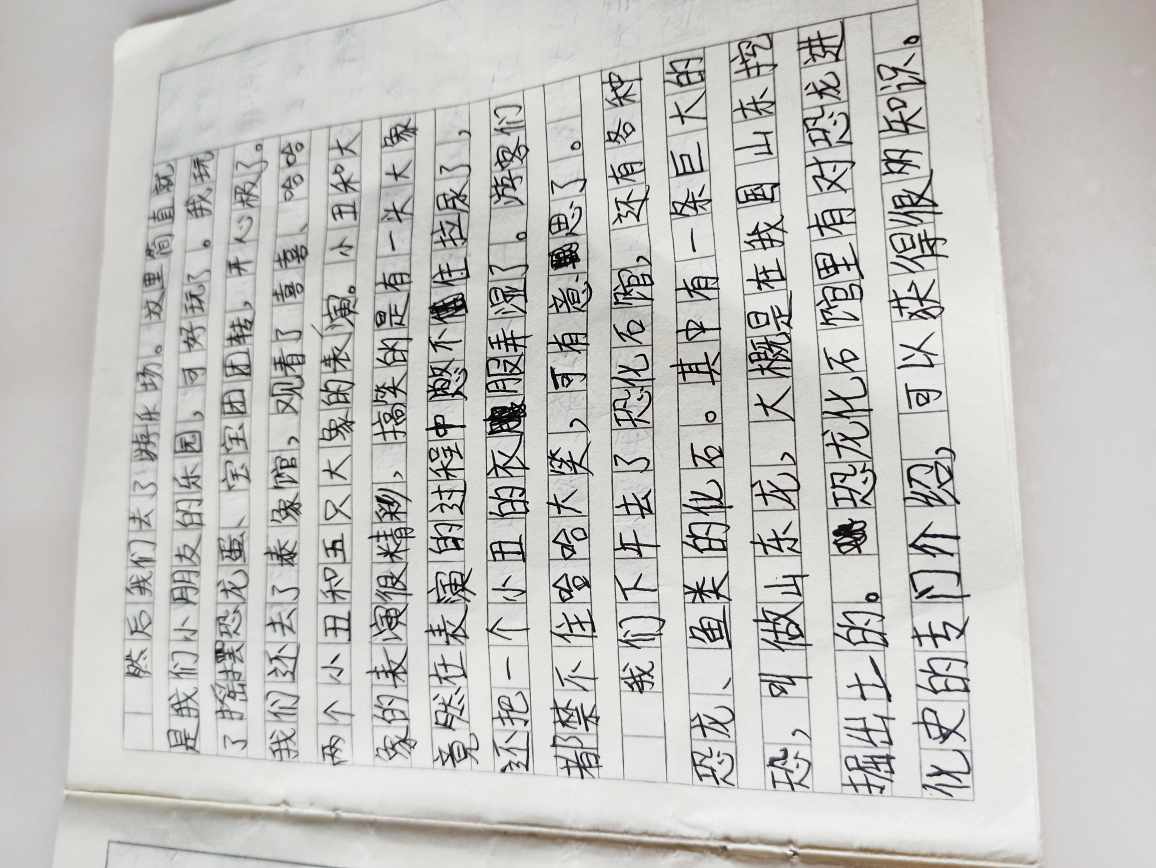 然后我们去了游乐场。这里简直就
是我们小朋友的乐园，可好玩了。我玩
了摇摆恐龙蛋、宝宝团团转，开心极了。
我们还去了泰象馆，观看了喜喜、哈哈
两个小丑和五只大象的表演。小丑和大
象的表演很精彩，搞笑的是有一头大象
竟然在表演的过程中憋不住拉尿了，
还把一个小丑的衣服弄湿了。游客们
都禁不住哈哈大笑，可有意思了。
我们下午去了恐化石馆，还有各种
恐龙、鱼类的化石。其中有一条巨大的
恐，叫做山东龙，大概是在我国山东挖
掘出土的。恐龙化石馆里有对恐龙进
化史的专门介绍，可以获得很多知识。